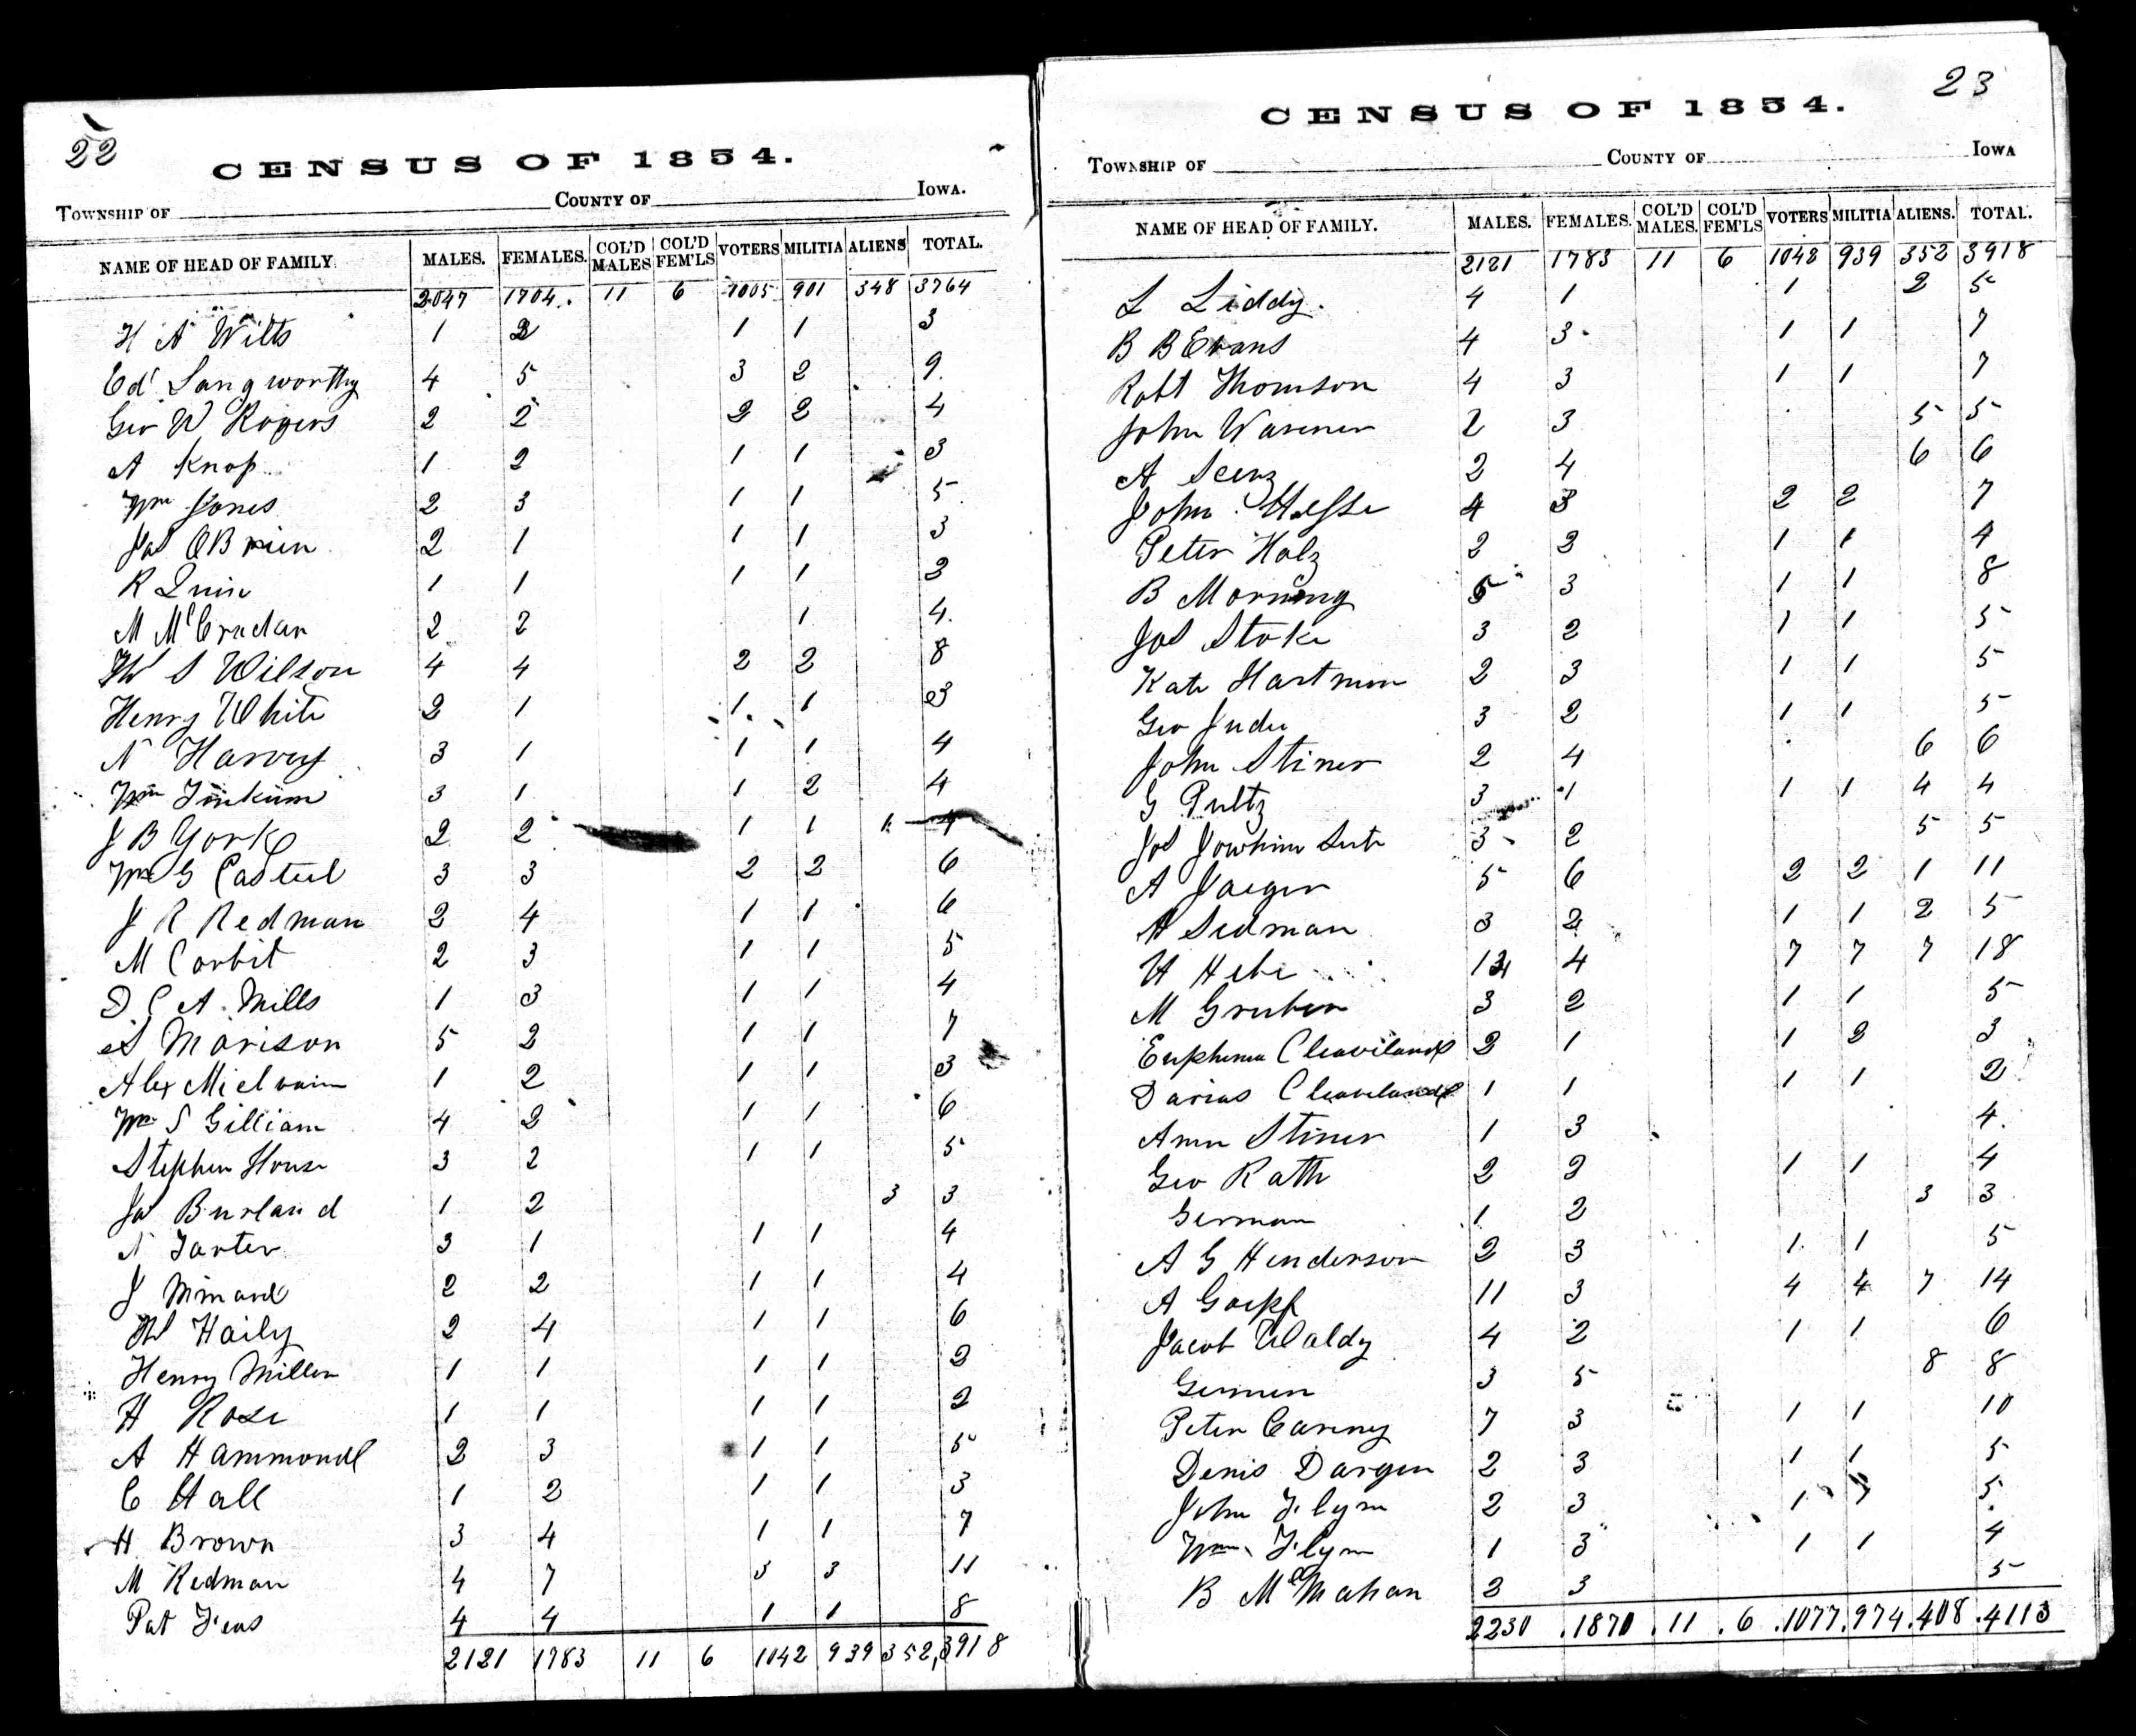 22
CENSUS OF 1854.
TOWNSHIP OF COUNTY OF IOWA.
NAME OF HEAD OF FAMILY. MALES. FEMALES. COL'D MALES COL'D FEM'LS VOTERS MILITIA ALIENS TOTAL.
2047 1704. 11 6 1005 901 348 3764
H A Wilts 1 2 1 1 3
Ed Langworthy 4 5 3 2 9
Geo W Rogers 2 2 2 2 4
A Knop 1 2 1 1 3
Wm Jones 2 3 1 1 5
Jas OBrien 2 1 1 1 3
R Quin 1 1 1 1 2
M McCradan 2 2 1 4
W S Wilson 4 4 2 2 8
Henry White 2 1 1 1 3
N Harvey 3 1 1 1 4
Wm Tinkum 3 1 1 2 4
J B York 2 2 1 1 1 4
Wm G Casteel 3 3 2 2 6
J R Redman 2 4 1 1 6
M Corbit 2 3 1 1 5
D C A Mills 1 3 1 1 4
S Morison 5 2 1 1 7
Alex Mielvain 1 2 1 1 3
Wm S Gilliam 4 2 1 1 6
Stephen House 3 2 1 1 5
Jas Burland 1 2 3 3
N Tarter 3 1 1 1 4
J Minard 2 2 1 1 4
W Haily 2 4 1 1 6
Henry Miller 1 1 1 1 2
H Rose 1 1 1 1 2
A Hammond 2 3 1 1 5
C Hall 1 2 1 1 3
H Brown 3 4 1 1 7
M Redman 4 7 3 3 11
Pat 4 4 1 1 8
2121 1783 11 6 1042 939 352 3918
23
CENSUS OF 1854.
TOWNSHIP OF COUNTY OF IOWA
NAME OF HEAD OF FAMILY. MALES. FEMALES. COL'D MALES. COL'D FEM'LS VOTERS MILITIA ALIENS. TOTAL.
2121 1783 11 6 1042 939 352 3918
L Liddy. 4 1 1 2 5
B B Evans 4 3 1 1 7
Robt Thomson 4 3 1 1 7
John Warener 2 3 5 5
A 2 4 6 6
John Hesse 4 3 2 2 7
Peter Holz 2 2 1 1 4
B Morning 5 3 1 1 8
Jos Stoke 3 2 1 1 5
Kate Hartman 2 3 1 1 5
Geo Jude 3 2 1 1 5
John Stiner 2 4 6 6
G Pultz 3 1 1 1 4 4
Jos 3 2 5 5
A Jaeger 5 6 2 2 1 11
H Sedman 3 2 1 1 2 5
H Hebe 14 4 7 7 7 18
M Gruber 3 2 1 1 5
Euphema Cleaviland 2 1 1 2 3
Darius Cleaveland 1 1 1 1 2
Ann Stiner 1 3 4
Geo Rath 2 2 1 1 4
German 1 2 3 3
A G Henderson 2 3 1 1 5
A Goepf 11 3 4 4 7 14
Jacob Waldy 4 2 1 1 6
German 3 5 8 8
Peter Careny 7 3 1 1 10
Denis Dargen 2 3 1 1 5
John Flynn 2 3 1 1 5
Wm Flynn 1 3 1 1 4
B McMahan 2 3 5
2230 1870 11 6 1077 974 408 4113